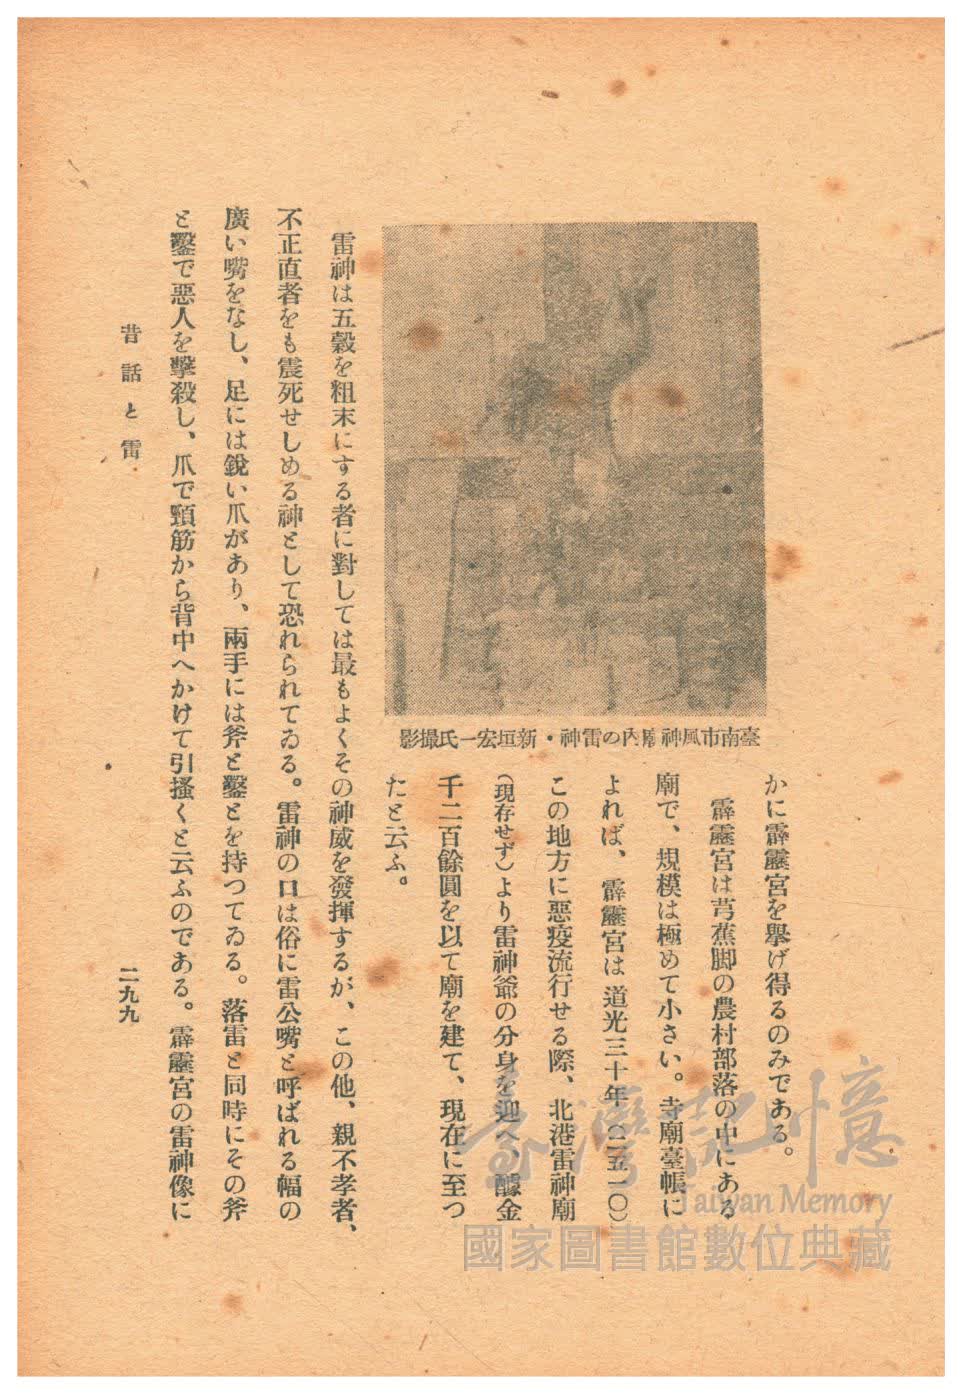 かに霹靂宮を擧げ得るのみである。
霹靂宮は芎蕉脚の農村部落の中にある
廟で、規模は極めて小さい。寺廟臺帳に
よれば、霹靂宮は道光三十年(二五一〇)
この地方に惡疫流行せる際、北港雷神廟
(現存せず)より雷神爺の分身を迎へ、醵金
千二百餘圓を以て廟を建て、現在に至つ
たと云ふ。
臺南市風神廟內の雷神・新垣宏一氏撮影
雷神は五穀を粗末にする者に對しては最もよくその神威を發揮するが、この他、親不孝者、
不正直者をも震死せしめる神として恐れられてゐる。雷神の口は俗に雷公嘴と呼ばれる幅の
廣い嘴をなし、足には銳い爪があり、兩手には斧と鑿とを持つてゐる。落雷と同時にその斧
と鑿で惡人を擊殺し、爪で頸筋から背中へかけて引搔くと云ふのである。霹靂宮の雷神像に
昔話と雷
二九九
臺灣記憶
Taiwan Memory
國家圖書館數位典藏